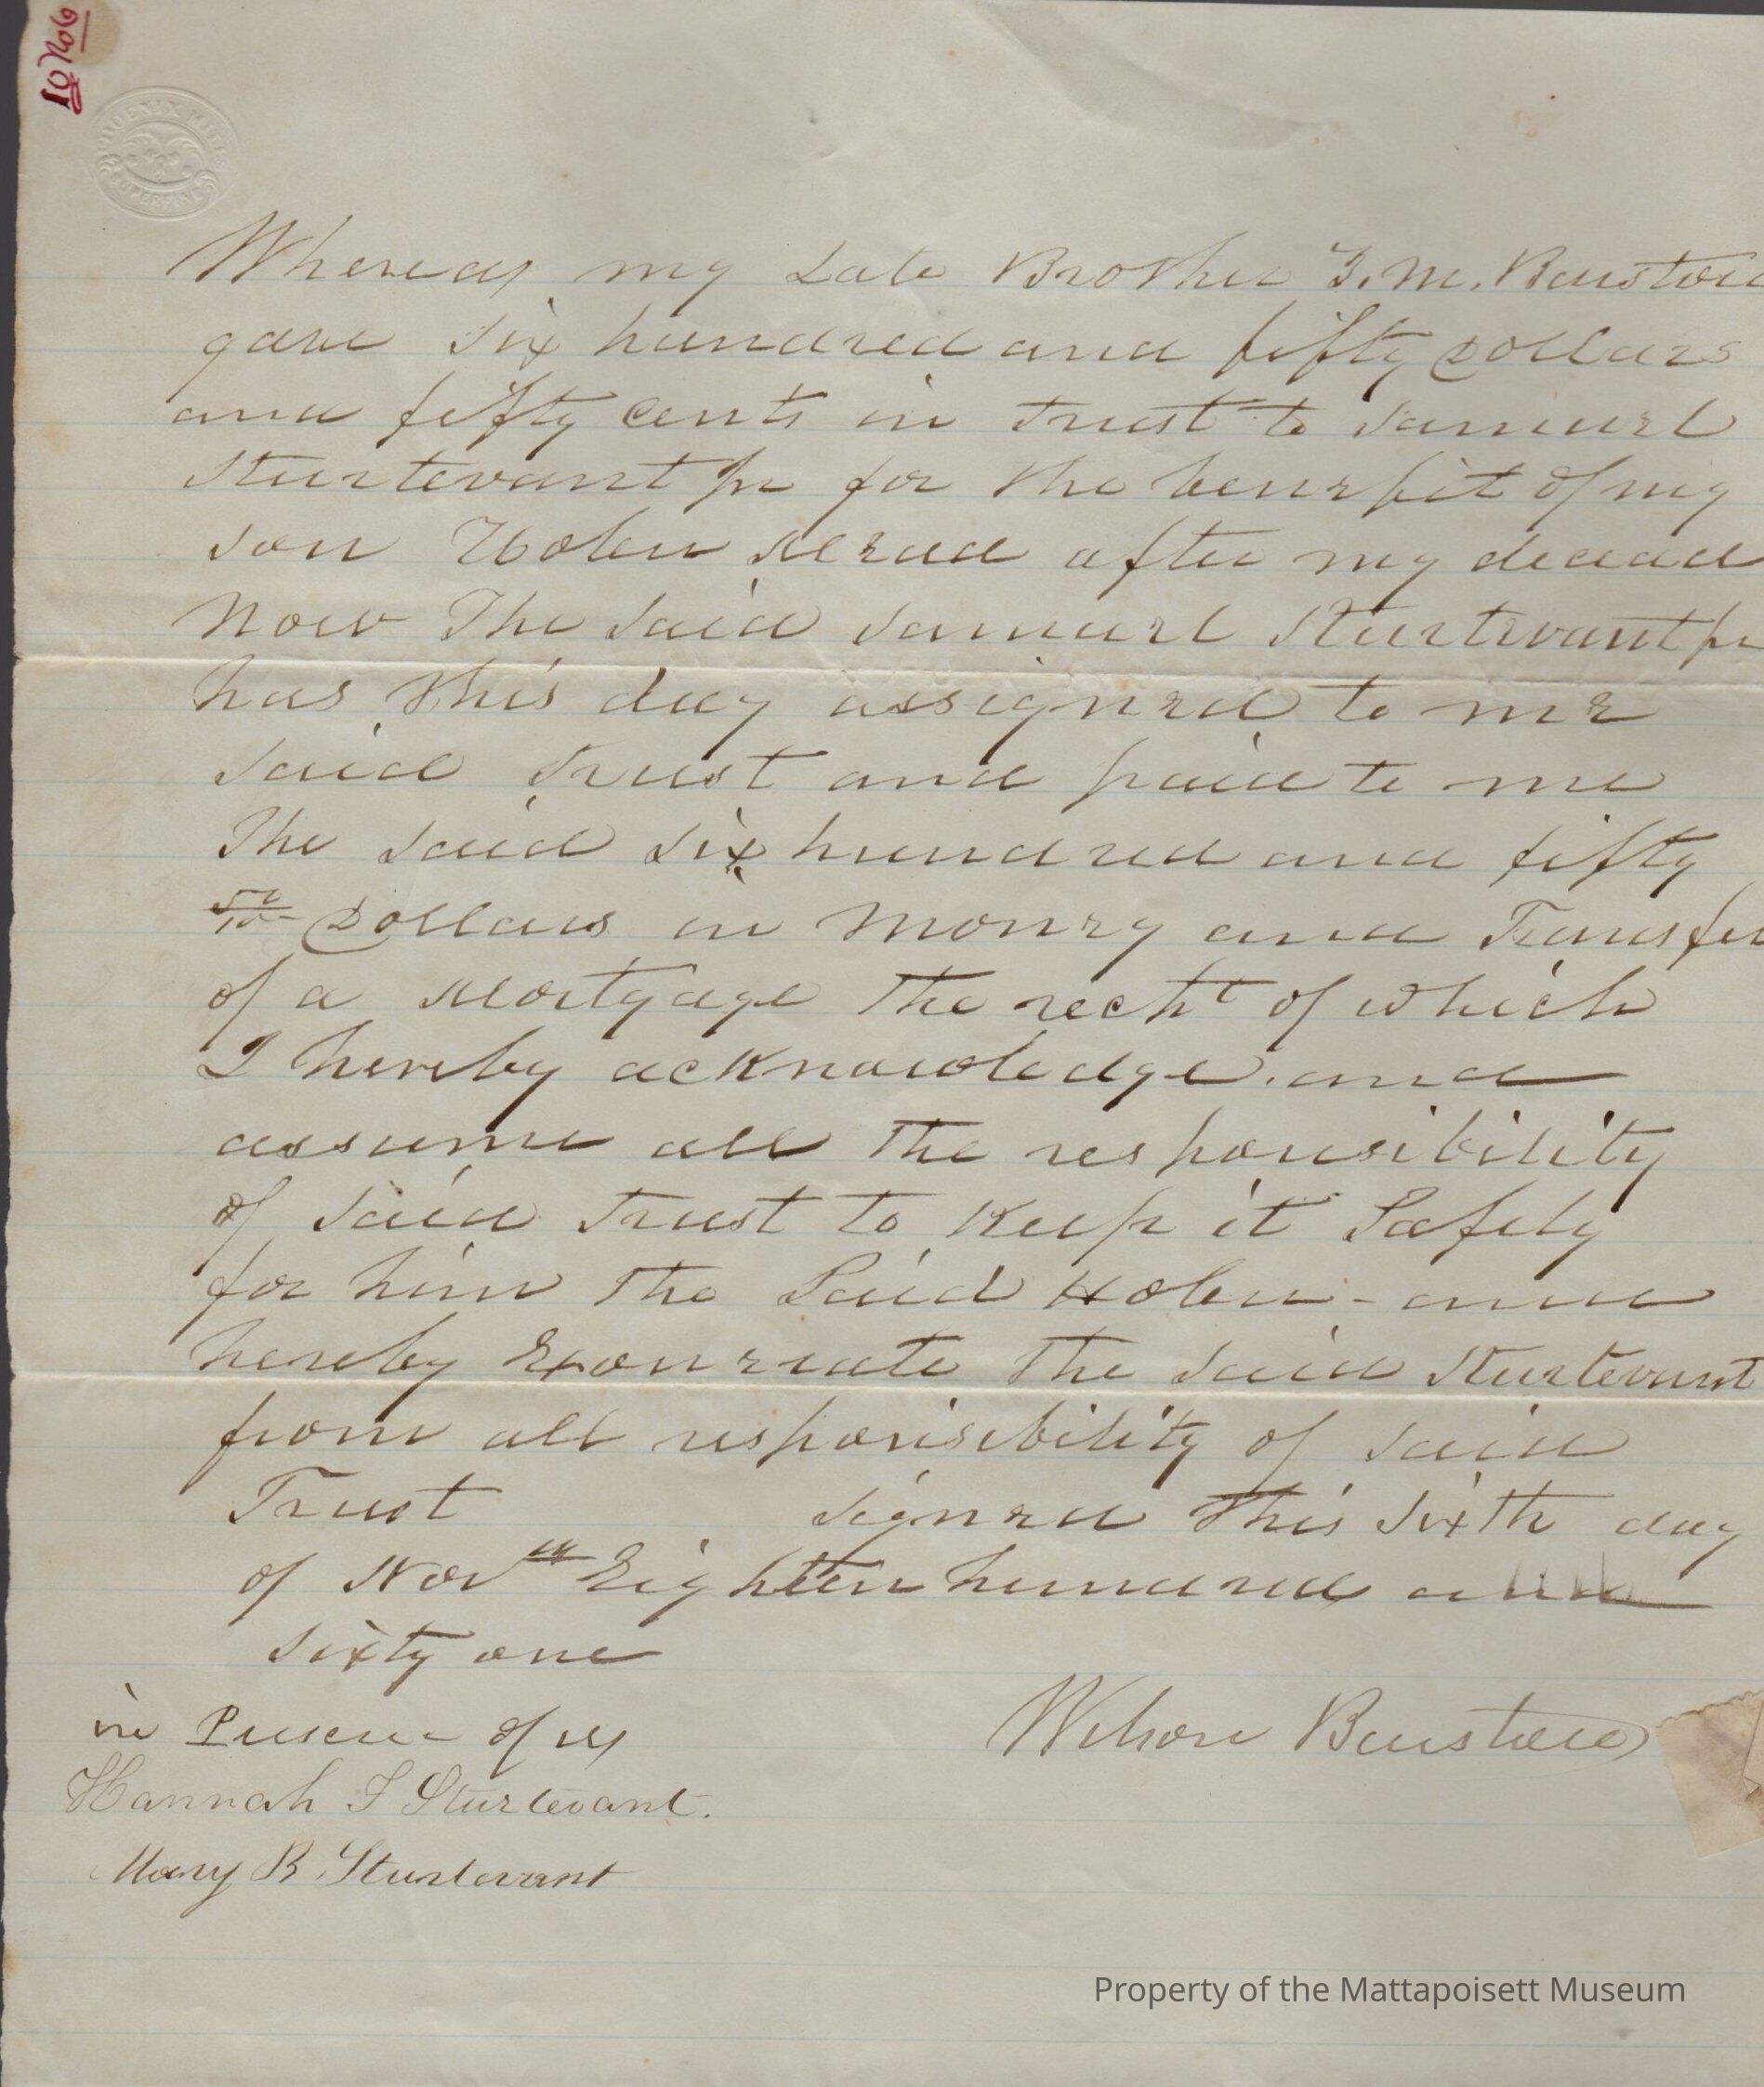 10 No6
PHOENIX MILLS
SUPERFINE
Whereas my Late Brother Z. M. Barstow
gave Six hundred and fifty Dollars
and fifty Cents in Trust to Samuel
Sturtevant Jr for the benefit of my
son Holen Mead after my decead
Now The Said Samuel Sturtevant Jr
has this day assigned to me
said Trust and paid to me
The said Six hundred and fifty
50/100 Dollars in Money and Transfer
of a Mortgage the recpt of which
I hereby acknowledge. and
assume all the responsibility
of Said Trust to Keep it Safely
for him the Said Holen - and
hereby Exonreate the said Sturtevant
from all responsibility of said
Trust Signed this Sixth day
of Nov Eighteen hundred and
Sixty one
in Presence of us
Wilson Barstow
Hannah F Sturtevant.
Mary B Sturtevant
Property of the Mattapoisett Museum